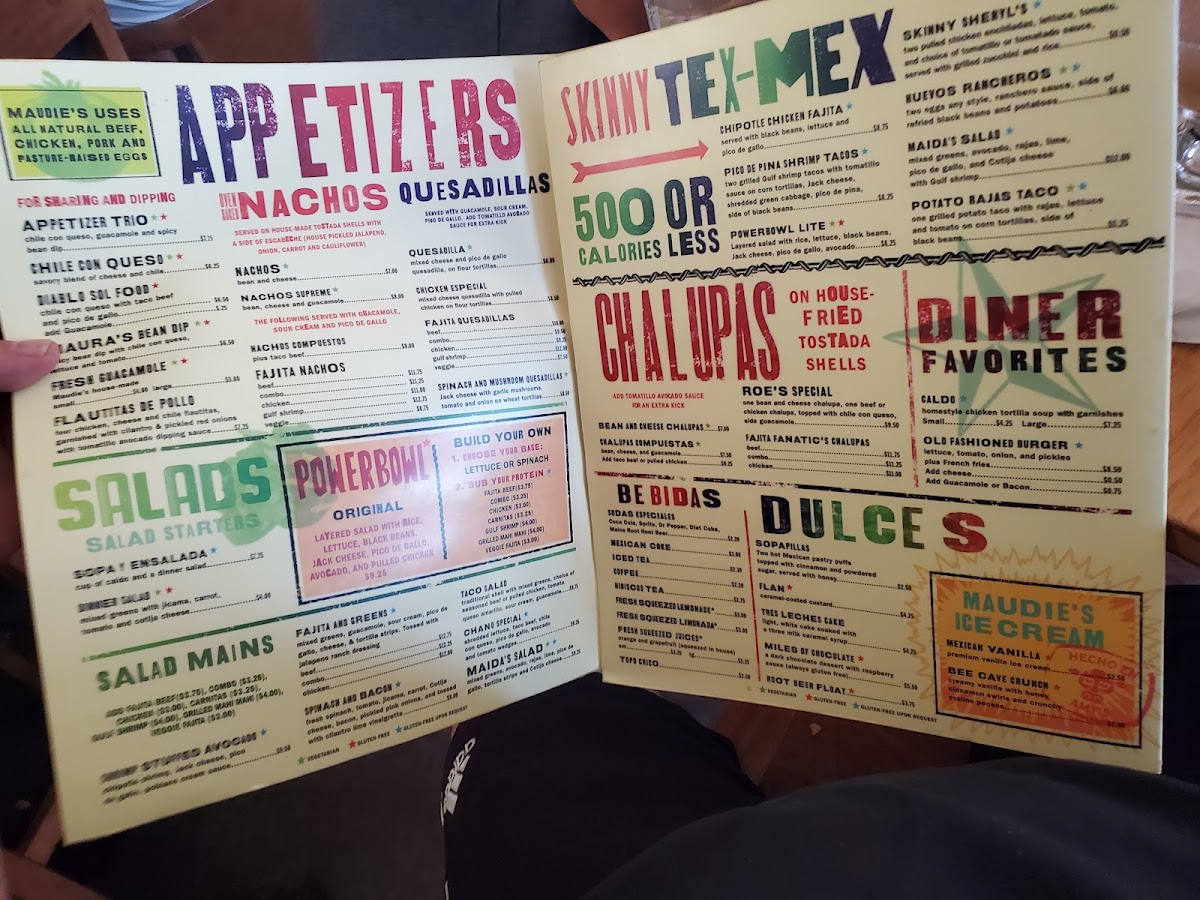 MAUDIE'S USES
ALL NATURAL BEEF,
CHICKEN, PORK AND
PASTURE-RAISED EGGS
APPETIZERS
FOR SHARING AND DIPPING
APPETIZER TRIO
chile con queso, guacamole and spicy
bean dip $7.25
CHILE CON QUESO
savory blend of cheese and chile $6.25
DIABLO SOL FOOD
chile con queso with taco beef
and pico de gallo $6.50
add Guacamole $.25
LAURA'S BEAN DIP
bean dip with chile con queso,
lettuce and tomato $6.50
FRESH GUACAMOLE
Maudie's house-made
small $4.00 large $5.00
FLAUTITAS DE POLLO
four chicken, cheese and chile flautitas,
garnished with cilantro & pickled red onions
with tomatillo avocado dipping sauce $7.25
OVEN BAKED NACHOS
SERVED ON HOUSE-MADE TOSTADA SHELLS WITH
A SIDE OF ESCABECHE (HOUSE PICKLED JALAPENO,
ONION, CARROT AND CAULIFLOWER)
NACHOS
bean and cheese $7.00
NACHOS SUPREME
bean, cheese and guacamole $8.00
THE FOLLOWING SERVED WITH GUACAMOLE,
SOUR CREAM AND PICO DE GALLO
NACHOS COMPUESTOS
plus taco beef $9.00
FAJITA NACHOS
beef $11.75
combo $11.25
chicken $11.00
gulf shrimp $12.75
veggie $8.75
QUESADILLAS
SERVED WITH GUACAMOLE, SOUR CREAM,
PICO DE GALLO, ADD TOMATILLO AVOCADO
SAUCE FOR EXTRA KICK
QUESADILLA
mixed cheese and pico de gallo
quesadilla, on flour tortillas
CHICKEN ESPECIAL
mixed cheese quesadilla with pulled
chicken on flour tortillas
FAJITA QUESADILLAS
beef
combo
chicken
gulf shrimp
veggie
SPINACH AND MUSHROOM QUESADILLAS
Jack cheese with garlic mushrooms,
tomato and onion on wheat tortillas
SALADS
SALAD STARTERS
SOPA Y ENSALADA
cup of caldo and a dinner salad $7.25
DINNER SALAD
mixed greens with jicama, carrot,
tomato and cotija cheese $4.00
POWERBOWL
ORIGINAL
LAYERED SALAD WITH RICE,
LETTUCE, BLACK BEANS,
JACK CHEESE, PICO DE GALLO,
AVOCADO, AND PULLED CHICKEN
$9.25
BUILD YOUR OWN
1. CHOOSE YOUR BASE:
LETTUCE OR SPINACH
2. SUB YOUR PROTEIN
FAJITA BEEF($3.75)
COMBO ($3.25)
CHICKEN ($3.00)
CARNITAS ($3.25)
GULF SHRIMP ($4.00)
GRILLED MAHI MAHI ($4.00)
VEGGIE FAJITA ($3.00)
SALAD MAINS
ADD FAJITA BEEF($3.75), COMBO ($3.25),
CHICKEN ($3.00), CARNITAS ($3.25),
GULF SHRIMP ($4.00), GRILLED MAHI MAHI ($4.00),
VEGGIE FAJITA ($3.00)
SHRIMP STUFFED AVOCADO
chipotle shrimp, jack cheese, pico
de gallo, poblano cream sauce
FAJITA AND GREENS
mixed greens, guacamole, sour cream, pico de
gallo, cheese, & tortilla strips. Tossed with
jalapeno ranch dressing
beef $12.75
combo
chicken $12.00
SPINACH AND BACON
fresh spinach, tomato, jicama, carrot, Cotija
cheese, bacon, pickled pink onions, and tossed
with cilantro lime vinaigrette
TACO SALAD
traditional shell with mixed greens, choice of
seasoned beef or pulled chicken, tomato,
queso amarillo, sour cream, guacamole
CHANO SPECIAL
shredded lettuce, taco beef, chile
con queso, pico de gallo, avocado
and tomato wedges
MAIDA'S SALAD
mixed greens, avocado, rajas, lime, pico de
gallo, tortilla strips and Cotija cheese
VEGETARIAN GLUTEN-FREE GLUTEN-FREE UPON REQUEST
SKINNY TEX-MEX
500 OR
CALORIES LESS
CHIPOTLE CHICKEN FAJITA
served with black beans, lettuce and
pico de gallo $8.75
PICO DE PINA SHRIMP TACOS
two grilled Gulf shrimp tacos with tomatillo
sauce on corn tortillas, Jack cheese,
shredded green cabbage, pico de pina,
side of black beans $8.25
POWERBOWL LITE
Layered salad with rice, lettuce, black beans,
Jack cheese, pico de gallo, avocado $8.25
SKINNY SHERYL'S
two pulled chicken enchiladas, lettuce, tomato,
and choice of tomatillo or tomatado sauce,
served with grilled zucchini and rice
HUEVOS RANCHEROS
two eggs any style, ranchero sauce, side of
refried black beans and potatoes
MAIDA'S SALAD
mixed greens, avocado, rajas, lime,
pico de gallo, and Cotija cheese
with Gulf shrimp
POTATO RAJAS TACO
one grilled potato taco with rajas, lettuce
and tomato on corn tortillas, side of
black beans
CHALUPAS
ON HOUSE-
FRIED
TOSTADA
SHELLS
ADD TOMATILLO AVOCADO SAUCE
FOR AN EXTRA KICK
BEAN AND CHEESE CHALUPAS $7.00
CHALUPAS COMPUESTAS
bean, cheese, and guacamole $7.50
Add taco beef or pulled chicken $9.25
ROE'S SPECIAL
one bean and cheese chalupa, one beef or
chicken chalupa, topped with chile con queso,
side guacamole $9.50
FAJITA FANATIC'S CHALUPAS
beef $11.75
combo $11.25
chicken $11.00
DINER
FAVORITES
CALDO
homestyle chicken tortilla soup with garnishes
Small $4.25 Large $7.25
OLD FASHIONED BURGER
lettuce, tomato, onion, and pickles
plus French fries $8.50
Add cheese $0.50
Add Guacamole or Bacon $0.75
BEBIDAS
SODAS ESPECIALES
Coca Cola, Sprite, Dr Pepper, Diet Coke,
Maine Root Root Beer
MEXICAN COKE
ICED TEA
COFFEE
HIBISCUS TEA
FRESH SQUEEZED LEMONADE
FRESH SQUEEZED LIMONADA
FRESH SQUEEZED JUICES
orange and grapefruit (squeezed in house)
sm lg
TOPO CHICO
DULCES
SOPAPILLAS
Two hot Mexican pastry puffs
topped with cinnamon and powdered
sugar, served with honey
FLAN
caramel-coated custard $4.25
TRES LECHES CAKE
light, white cake soaked with
a three milk caramel syrup $4.75
MILES OF CHOCOLATE
a dark chocolate dessert with raspberry
sauce (always gluten free) $5.50
ROOT BEER FLOAT $3.75
VEGETARIAN GLUTEN-FREE GLUTEN-FREE UPON REQUEST
MAUDIE'S
ICE CREAM
MEXICAN VANILLA
premium vanilla ice cream $2.50
BEE CAVE CRUNCH
creamy vanilla with honey
cinnamon swirls and crunchy
praline pecans
HECHO
AMY'S